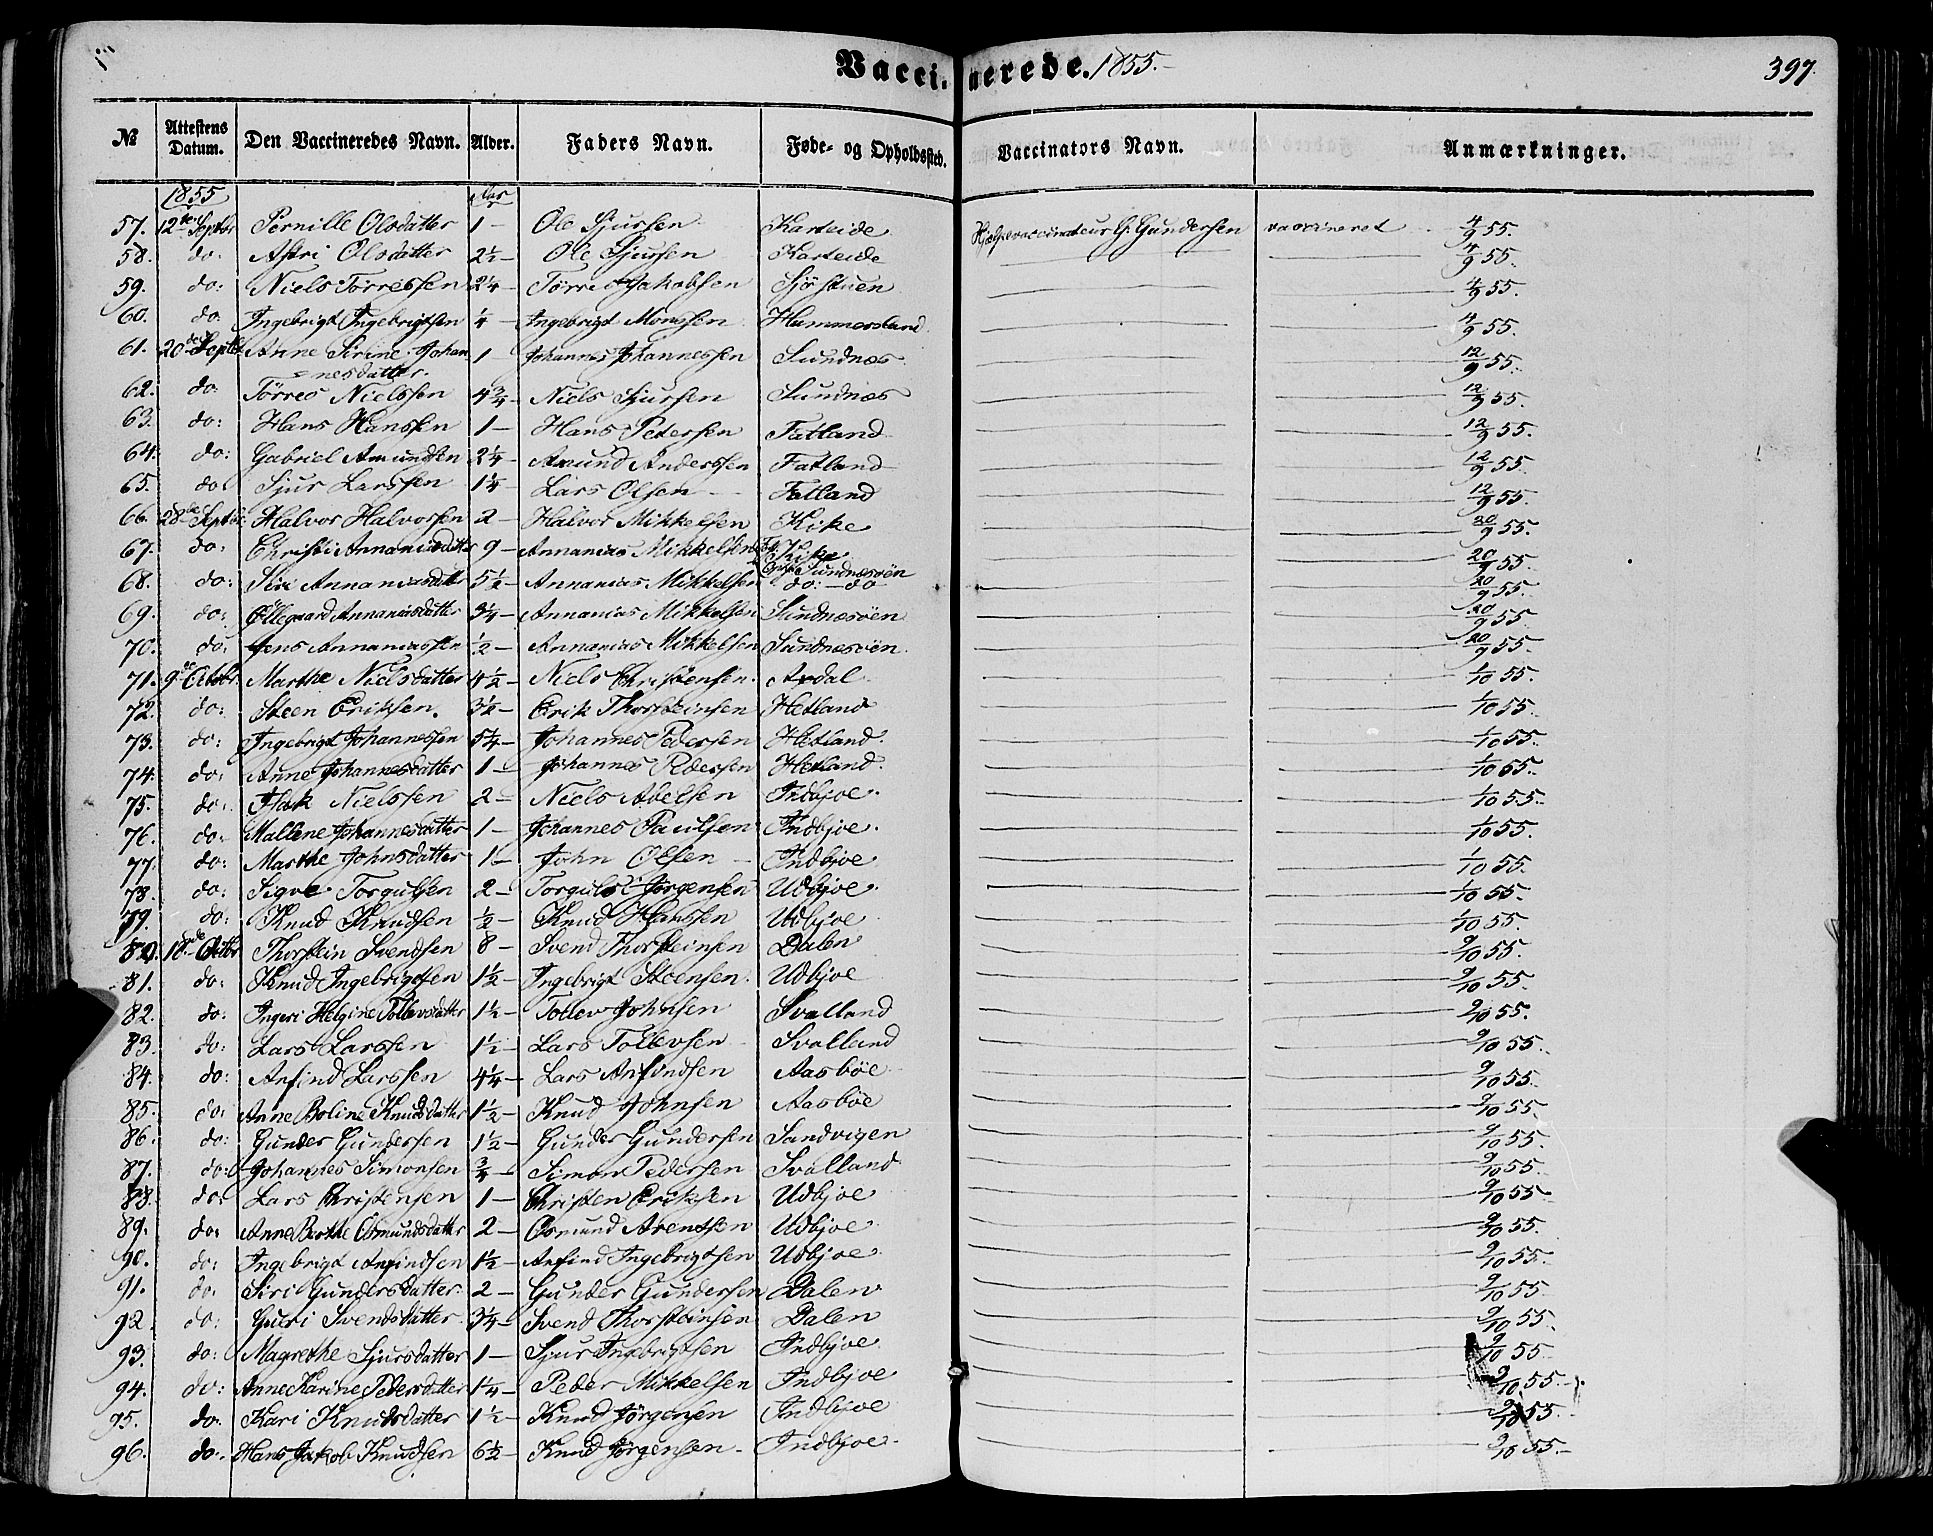 Vaccinerede. 1855.
397.
№ Attestens Datum. Den Vaccineredes Navn. Alder. Faders Navn. Føde- og Opholdssted. Vaccinators Navn. Anmærkninger.
1855 Aar
57. 12te Septbr Pernille Olsdatter 1 - Ole Sjursen Karteide Hjælpevaccinateur G. Gundersen vaccineret 4/9 55.
58. do: Astri Olsdatter 2½ - Ole Sjursen Karteide 4/9 55.
59. do: Niels Tørressen 2¼ - Tørres Jakobsen Sjöstuen 4/9 55.
60. do Ingebrigt Ingebrigtsen ¼ - Ingebrigt Monssen Hammersland 4/9 55.
61. 20de Septbr Anne Sirine Johan 1 - Johannes Johannessen Sundnæs 12/9 55.
= nesdatter.
62. do Törres Nielssen 4¾ - Niels Sjursen Sundnæs 12/9 55.
63. do: Hans Hanssen 1 - Hans Pedersen Fatland 12/9 55.
64. do: Gabriel Amundsen 2¼ - Amund Anderssen Fatland 12/9 55.
65. do: Sjur Larssen 1¼ - Lars Olsen Fatland 12/9 55.
66. 28de Septbr Halvor Halvorsen 2 - Halvor Mikkelsen Kike 20/9 55.
67. do: Christi Annaniasdatter 9 - Annanias Mikkelsen Kike Sundnæsöen 20/9 55.
68. do: Siri Annaniasdatter 5½ - Annanias Mikkelsen do: - do 20/9 55.
69. do: Öllegaard Annaniasdatter 3¼ - Annanias Mikkelsen Sundnæsöen 20/9 55.
70. do: Jens Annaniassen ½ - Annanias Mikkelsen Sundnæsöen 20/9 55.
71. 9de Octobr. Marthe Nielsdatter 1½ - Niels Christensen Aadal 1/10 55.
72. do: Steen Eriksen. 3½ - Erik Thorsteinsen Hetland 1/10 55.
73. do: Ingebrigt Johannessen 5¼ - Johannes Pedersen Hetland. 1/10 55.
74. do: Anne Johannesdatter 1 - Johannes Pedersen Hetland. 1/10 55.
75. do: Isak Nielssen 2 - Niels Abelsen Indbjoe. 1/10 55.
76. do: Mallene Johannesdatter 1 - Johannes Paulsen Indbjoe. 1/10 55.
77. do: Marthe Johnsdatter 1 - John Olsen Indbjoe 1/10 55.
78. do: Sigve Torgulssen 2 - Torguls Jørgensen Udbjoe. 1/10 55.
79. do: Knud Knudsen ½ - Knud Hanssen Udbjoe 1/10 55.
80. 18de Octbr Thorstein Svendsen 8 - Svend Thorsteinsen Dalen 9/10 55.
81. do: Knud Ingebrigtsen 1½ - Ingebrigt Steensen. Udbjoe 9/10 55.
82. do: Ingeri Helgine Tollevsdatter 1½ - Tollev Johnsen Svalland 9/10 55.
83. do: Lars Larssen 1½ - Lars Tollevsen Svalland 9/10 55.
84. do: Anfind Larssen 4¼ - Lars Anfindsen Aasböe 9/10 55.
85. do: Anne Boline Knudsdatter 1½ - Knud Johnsen Aasböe 9/10 55.
86. do: Gunder Gundersen 1½ - Gunder Gundersen Sandvigen 9/10 55.
87. do: Johannes Simonsen ¾ - Simon Pedersen Svalland 9/10 55.
88. do: Lars Christensen 1 - Christen Eriksen Udbjoe 9/10 55.
89. do: Anne Birthe Osmundsdatter 2 - Osmund Arentsen Udbjoe 9/10 55.
90. do: Ingebrigt Anfindsen 1½ - Anfind Ingebrigtsen Udbjoe. 9/10 55.
91. do. Siri Gundersdatter. 2 - Gunder Gundersen Dalen 9/10 55.
92. do: Guri Svendsdatter 3¼ - Svend Thorsteinsen Dalen 9/10 55.
93. do: Magrethe Sjursdatter 1 - Sjur Ingebrigtsen Indbjoe. 9/10 55.
94. do: Anne Karine Pedersdatter 1¼ - Peder Mikkelsen Indbjoe 9/10 55.
95. do: Kari Knudsdatter 1½ - Knud Jörgensen Indbjoe 9/10 55.
96. do: Hans Jakob Knudsen 6½ - Knud Jörgensen Indbjoe. 9/10 55.